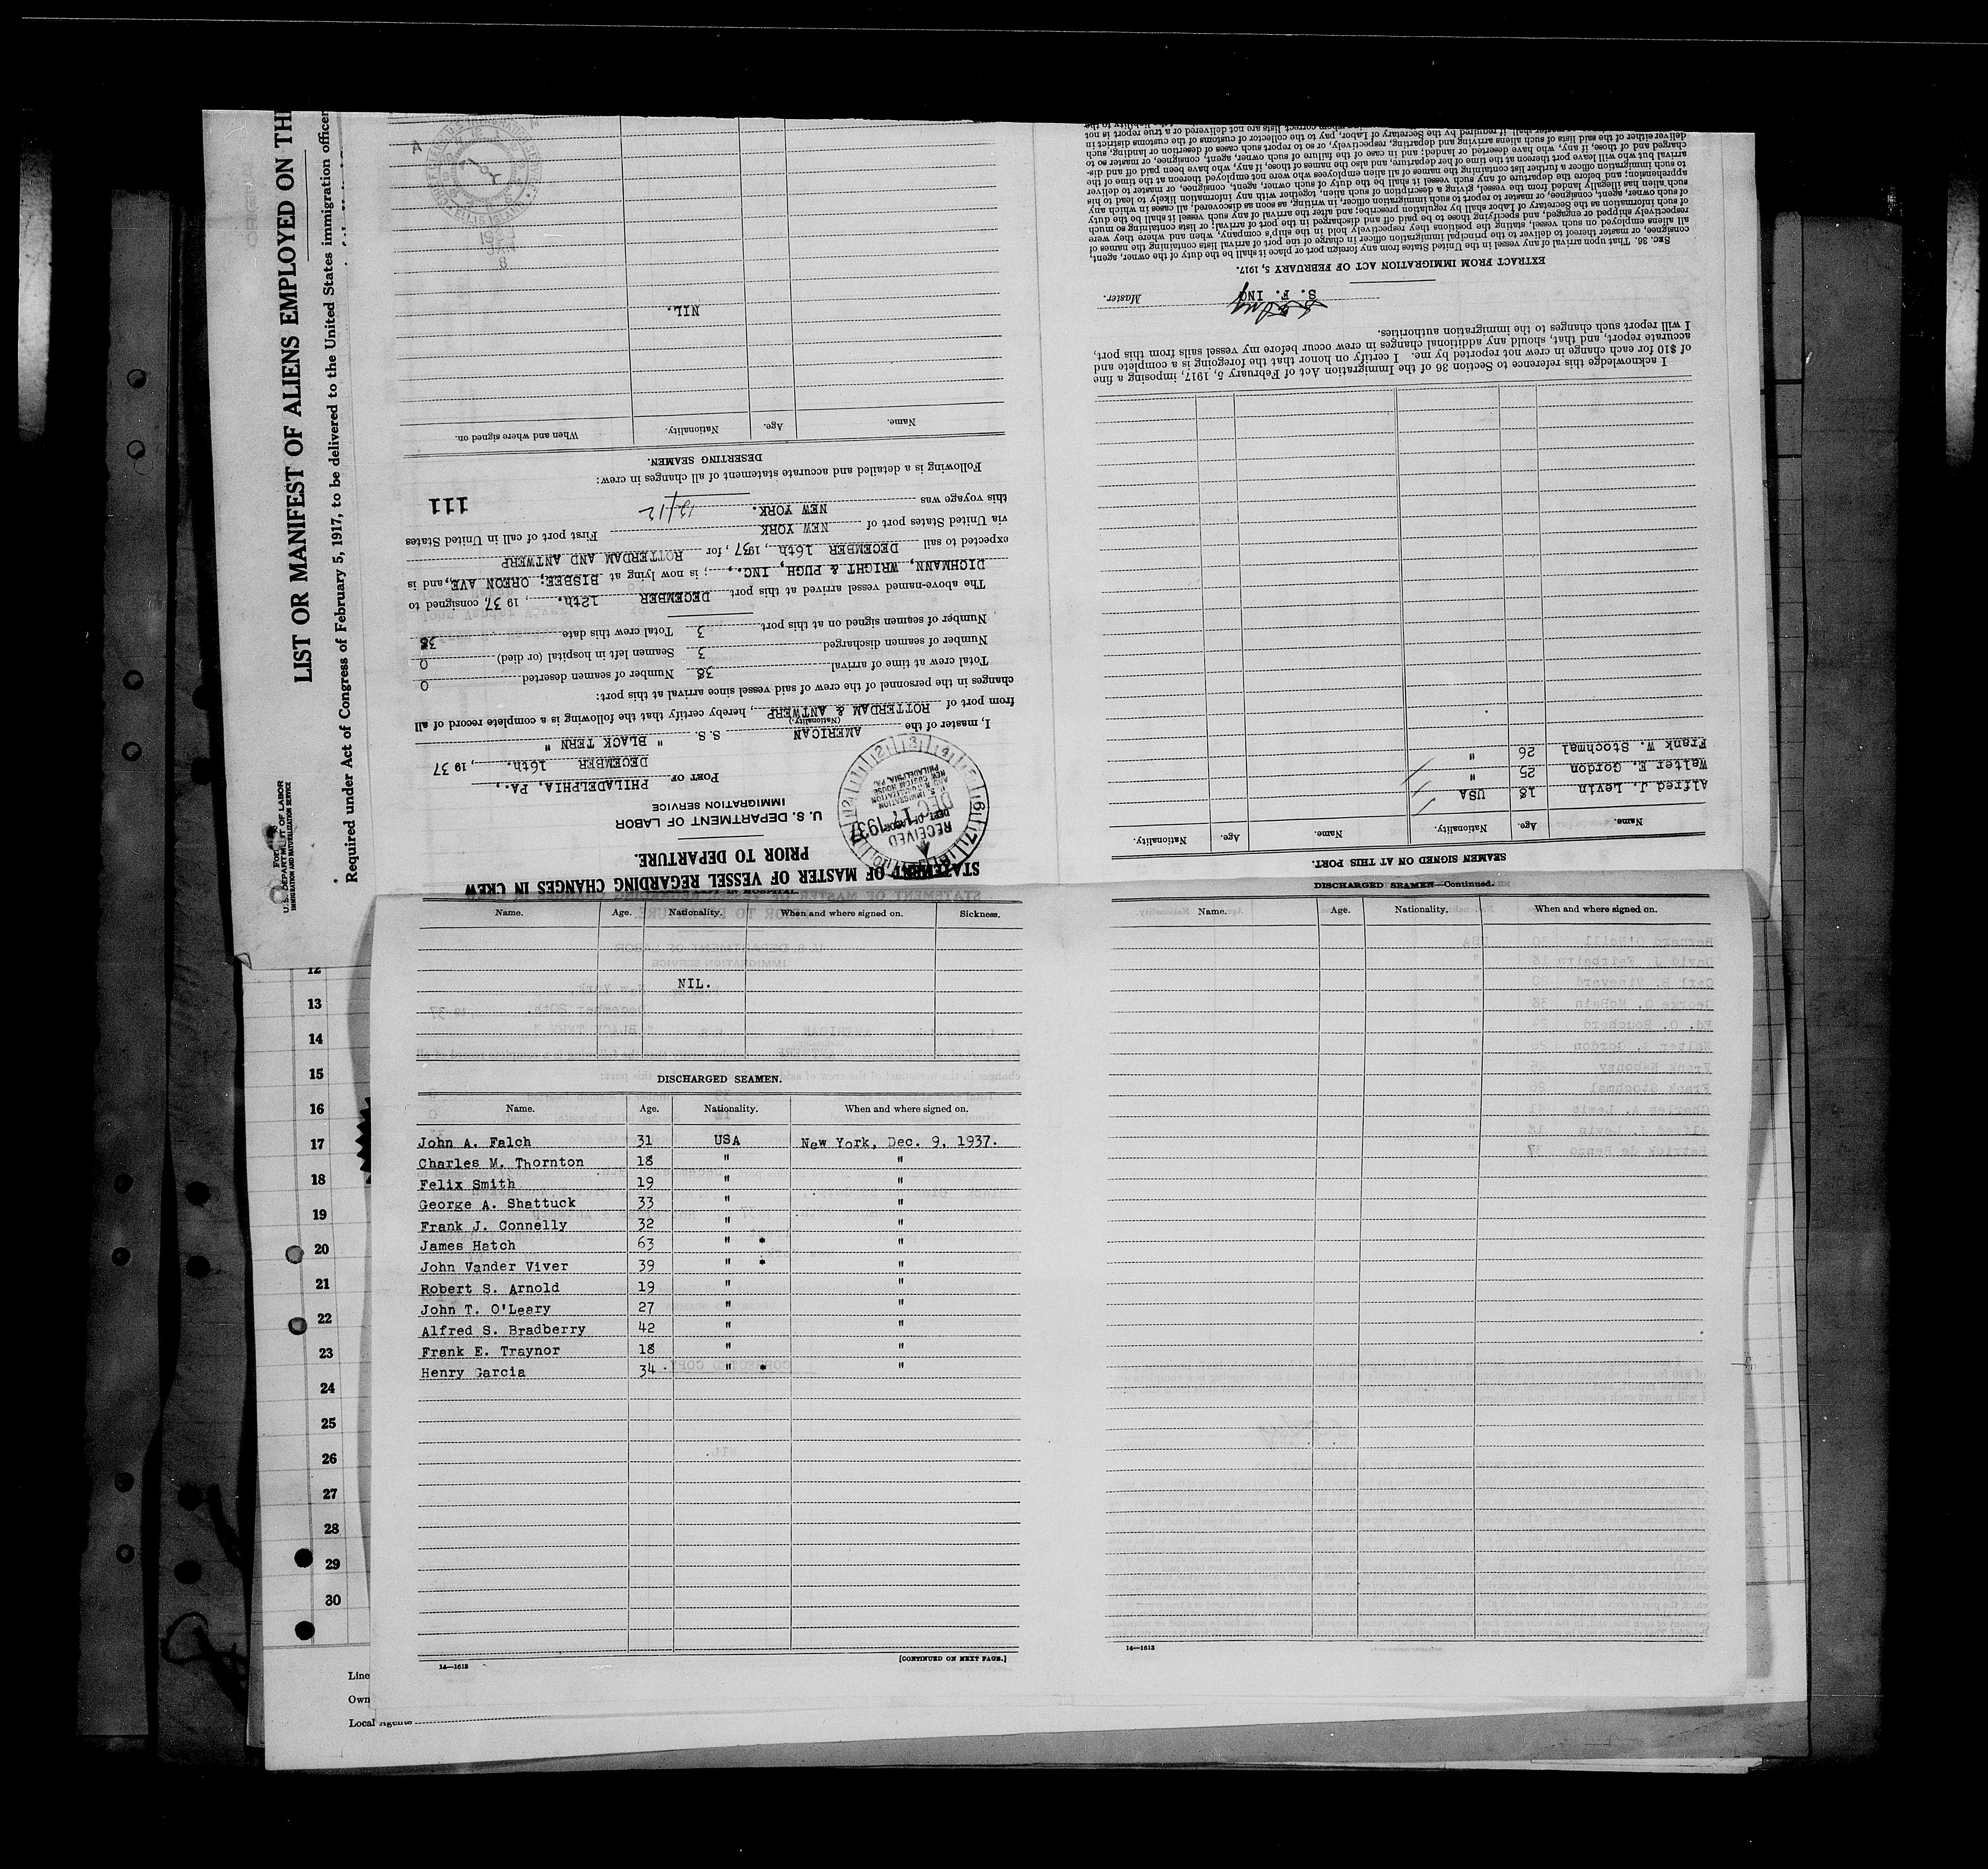 LIST OR MANIFEST OF ALIENS EMPLOYED ON TH
Required under Act of Congress of February 5, 1917, to be delivered to the United States immigration officer
U.S. DEPARTMENT OF LABOR
IMMIGRATION AND NATURALIZATION SERVICE
STATEMENT OF MASTER OF VESSEL REGARDING CHANGES IN CREW
PRIOR TO DEPARTURE.
U. S. DEPARTMENT OF LABOR
IMMIGRATION SERVICE
RECEIVED
DEC 17 1937
DEPT. OF LABOR
U. S. IMMIGRATION
AND NATURALIZATION
NEW CUSTOM HOUSE
PHILADELPHIA, PA.
PORT OF PHILADELPHIA, PA.,
DECEMBER 16th. , 1937
I, master of the AMERICAN S.S. " BLACK TERN "
(Nationality.)
from port of ROTTERDAM & ANTWERP , hereby certify that the following is a complete record of all
changes in the personnel of the crew of said vessel since arrival at this port:
Total crew at time of arrival 38 Number of seamen deserted 0
Number of seamen discharged 3 Seamen left in hospital (or died) 0
Number of seamen signed on at this port 3 Total crew this date 38
The above-named vessel arrived at this port DECEMBER 12th. , 1937 consigned to
DICHMANN, WRIGHT & PUGH, INC., ; is now lying at BISBEE; OREON AVE, and is
expected to sail DECEMBER 16th , 1937 , for ROTTERDAM AND ANTWERP
via United States port of NEW YORK First port of call in United States
this voyage was NEW YORK. 12/12
111
Following is a detailed and accurate statement of all changes in crew:
DESERTING SEAMEN.
Name. Age. Nationality. When and where signed on.
NIL.
SEAMEN SIGNED ON AT THIS PORT.
Name. Age. Nationality. Name. Age. Nationality.
Alfred J. Levin 18 USA
Walter E. Gordon 25 "
Frank W. Stochmal 26 "
I acknowledge this reference to Section 36 of the Immigration Act of February 5, 1917, imposing a fine
of $10 for each change in crew not reported by me. I certify on honor that the foregoing is a complete and
accurate report, and that, should any additional changes in crew occur before my vessel sails from this port,
I will report such changes to the immigration authorities.
S. F. ING Master.
EXTRACT FROM IMMIGRATION ACT OF FEBRUARY 5, 1917.
SEC. 36. That upon arrival of any vessel in the United States from any foreign port or place it shall be the duty of the owner, agent,
consignee, or master thereof to deliver to the principal immigration officer in charge of the port of arrival lists containing the names of
all aliens employed on such vessel, stating the positions they respectively hold in the ship's company, when and where they were
respectively shipped or engaged, and specifying those to be paid off and discharged in the port of arrival; or lists containing so much
of such information as the Secretary of Labor shall by regulation prescribe; and after the arrival of any such vessel it shall be the duty
of such owner, agent, consignee, or master to report to such immigration officer, in writing, as soon as discovered, all cases in which any
such alien has illegally landed from the vessel, giving a description of such alien, together with any information likely to lead to his
apprehension; and before the departure of any such vessel it shall be the duty of such owner, agent, consignee, or master to deliver
to such immigration officer a further list containing the names of all alien employees who were not employed thereon at the time of the
arrival but who will leave port thereon at the time of her departure, and also the names of those, if any, who have been paid off and dis-
charged and of those, if any, who have deserted or landed; and in case of the failure of such owner, agent, consignee, or master so to
deliver either of the said lists of such aliens arriving and departing, respectively, or so to report such cases of desertion or landing, such
Name. Age. Nationality. When and where signed on. Sickness.
NIL.
DISCHARGED SEAMEN.
Name. Age. Nationality. When and where signed on.
John A. Falch 31 USA New York, Dec. 9, 1937.
Charles M. Thornton 18 " "
Felix Smith 19 " "
George A. Shattuck 33 " "
Frank J. Connelly 32 " "
James Hatch 63 " * "
John Vander Viver 39 " * "
Robert S. Arnold 19 " "
John T. O'Leary 27 " "
Alfred S. Bradberry 42 " "
Frank E. Traynor 18 " "
Henry Garcia 34 " * "
14—1613
[CONTINUED ON NEXT PAGE.]
DISCHARGED SEAMEN—Continued.
Name. Age. Nationality. When and where signed on.
14—1613
12
13
14
15
16
17
18
19
20
21
22
23
24
25
26
27
28
29
30
Line
Own
Local Agents